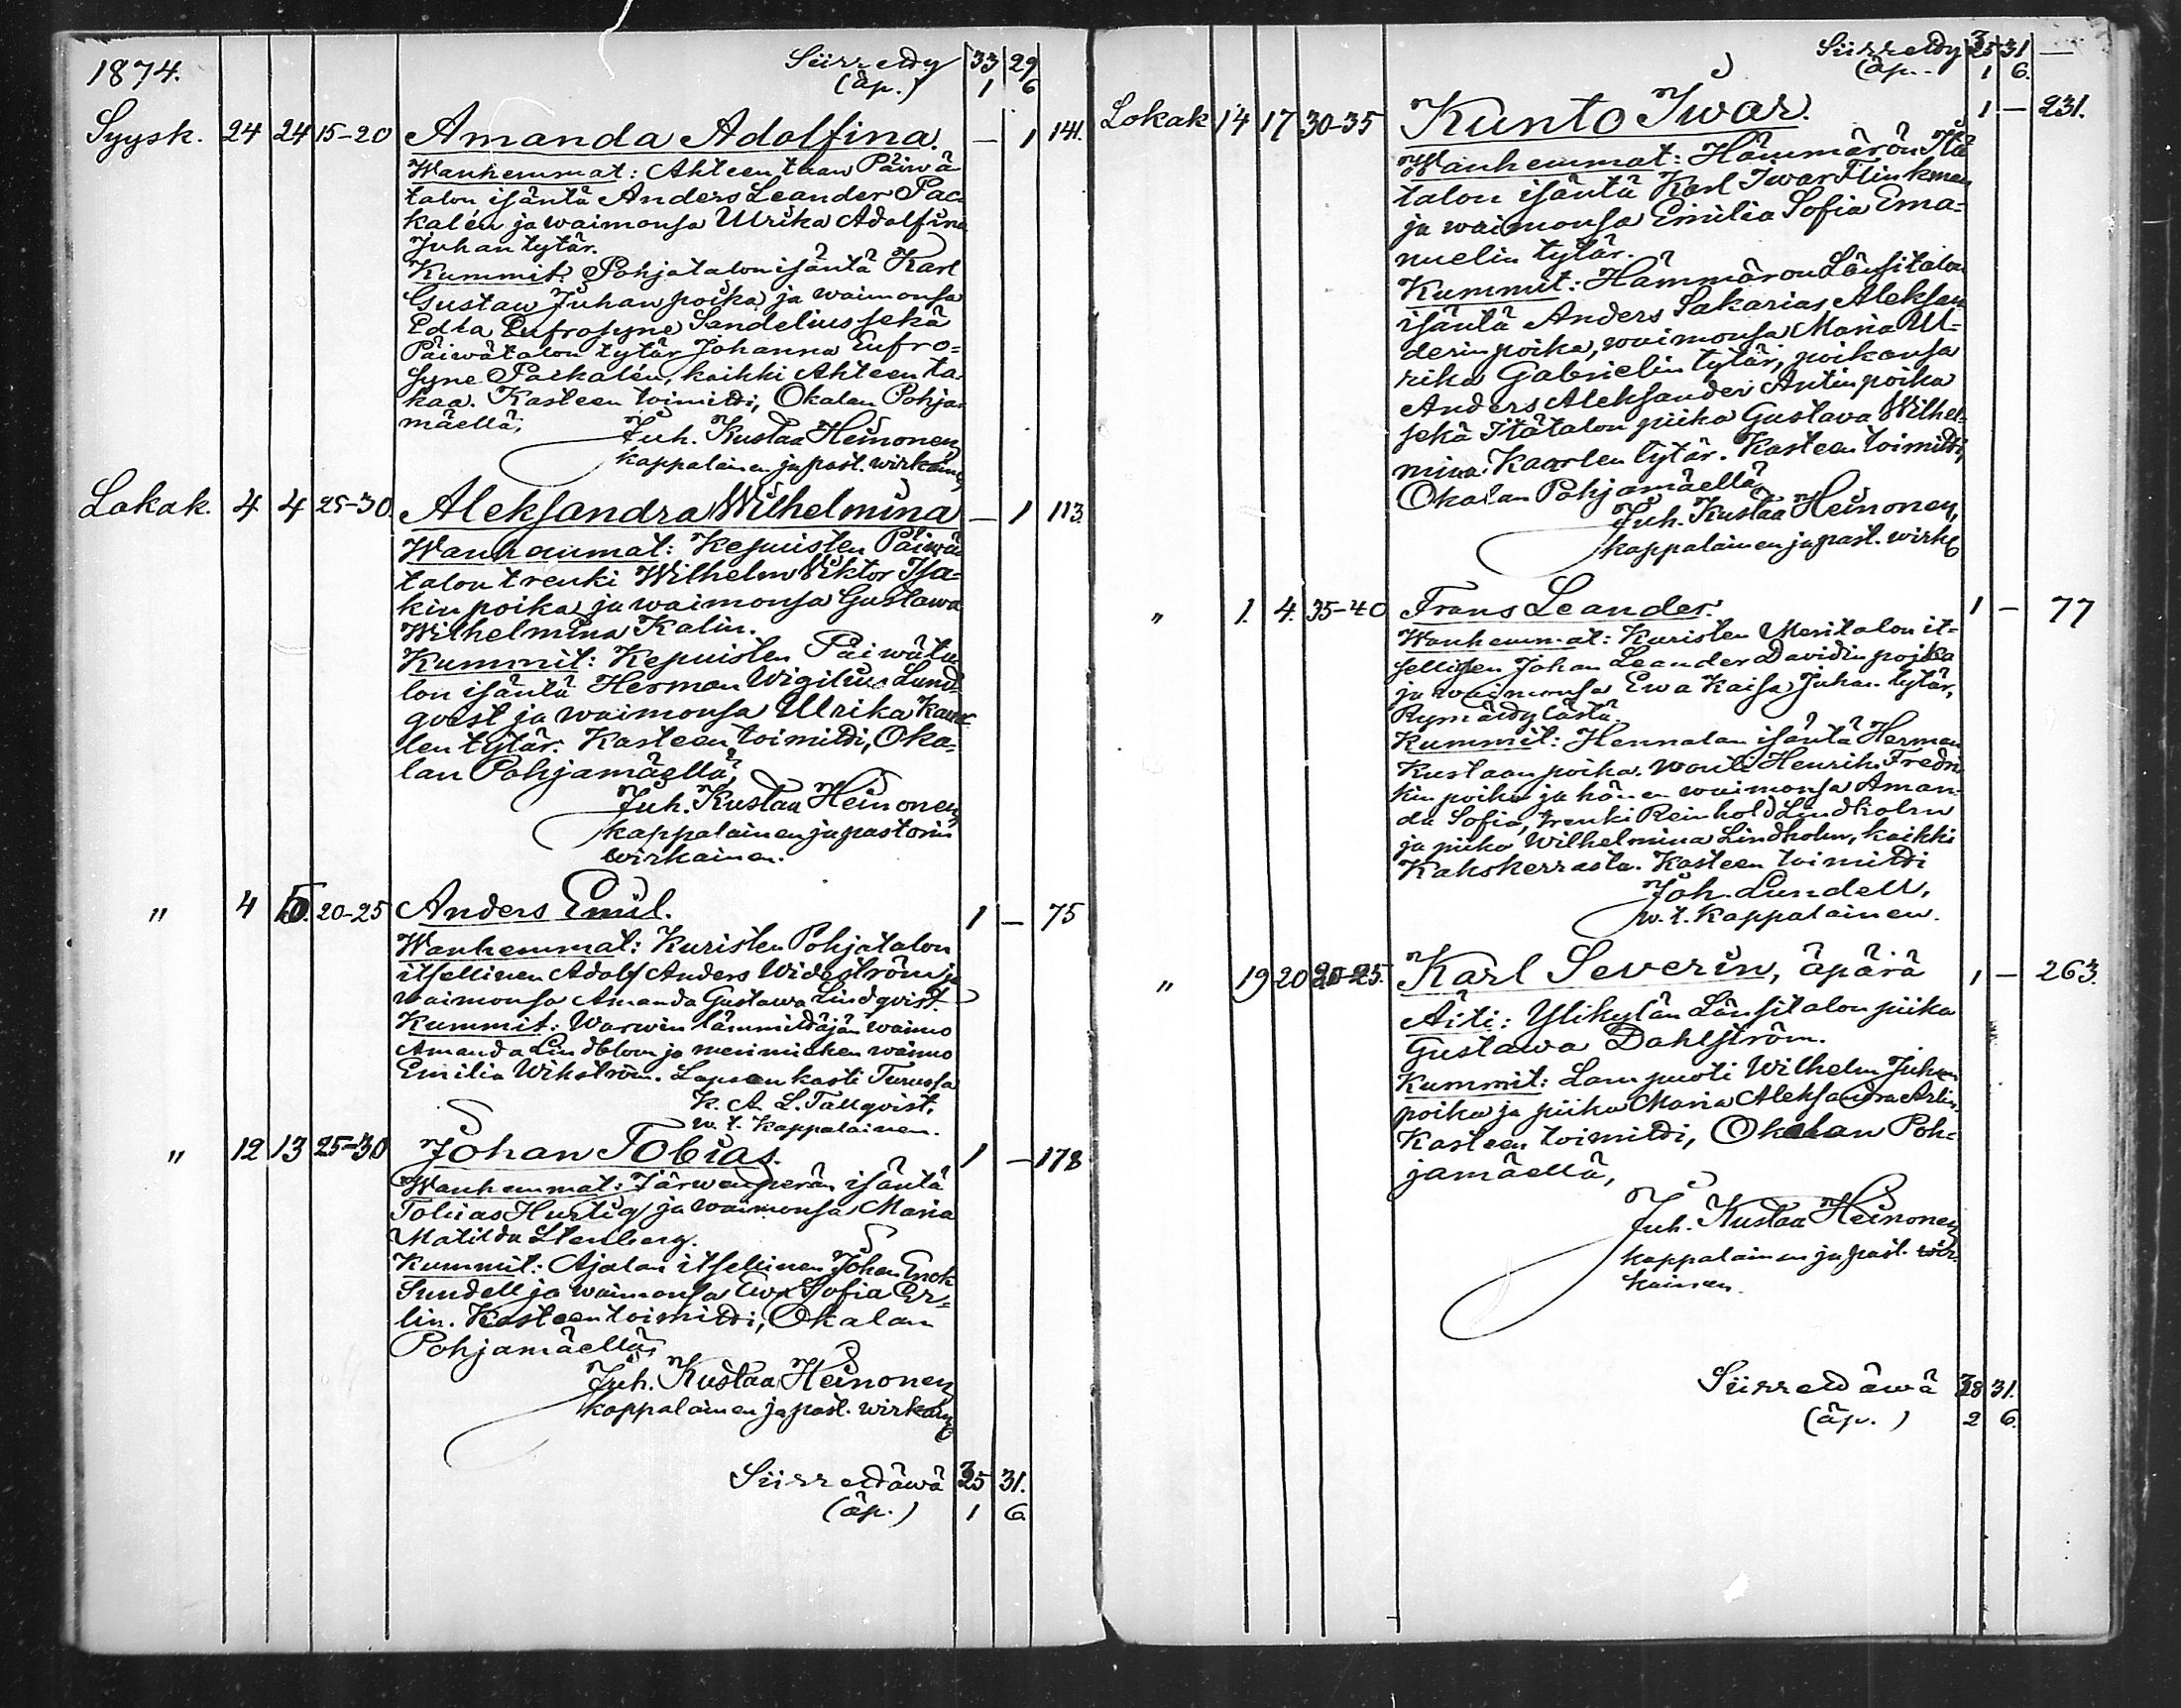 1874.
Siirretty 33 29
(äp.) 1 6
Syysk. 24 24 15-20 Amanda Adolfina. — 1 141.
Wanhemmat: Ahteentaan Päiwä
talon isäntä Anders Leander Pac-
kalén ja waimonsa Ulrika Adolfina
Juhan tytär.
Kummit: Pohjatalon isäntä Karl
Gustaw Juhanpoika ja waimonsa
Edla Eufrosyne Sandelius sekä
Päiwätalon tytär Johanna Eufro-
syne Packalén, kaikki Ahteenta-
kaa. Kasteen toimitti, Okalan Pohja-
mäellä,
Juh. Kustaa Heinonen,
kappalainen ja past. wirkain.
Lokak. 4 4 25-30. Aleksandra Wilhelmina — 1 113.
Wanhemmat: Kepuisten Päiwä
talon trenki Wilhelm Wiktor Isa-
kinpoika ja waimonsa Gustawa
Wilhelmina Kalin.
Kummit: Kepuisten Päiwäta-
lon isäntä Herman Wigilius Lund-
qvist ja waimonsa Ulrika Kaar-
len tytär. Kasteen toimitti, Oka-
lan Pohjamäellä,
Juh. Kustaa Heinonen
kappalainen ja pastorin
wirkainen.
" 4 15. 20-25 Anders Emil. 1 — 75
Wanhemmat: Kuristen Pohjatalon
itsellinen Adolf Anders Wideström ja
waimonsa Amanda Gustawa Lindqvist.
Kummit: Warwin lämmittäjän waimo
Amanda Lindblom ja merimiehen waimo
Emilia Wikström. Lapsen kasti Turussa
K. A. L. Tallqvist,
w. t. kappalainen.
" 12 13 25-30 Johan Tobias. 1 — 178
Wanhemmat: Järwenperän isäntä
Tobias Hurtig ja waimonsa Maria
Matilda Stenberg.
Kummit: Ajalan itsellinen Johan Enok
Sundell ja waimonsa Ewa Sofia Er-
lin. Kasteen toimitti, Okalan
Pohjamäellä,
Juh. Kustaa Heinonen
kappalainen ja past. wirkain.
Siirrettäwä 35 31.
(äp.) 1 6
Siirretty 35 31 —
(äp. 1 6.
Lokak 14 17 30-35 Kunto Iwar. 1 — 231.
Wanhemmat: Hämmärön Itä
talon isäntä Karl Iwar Flinkman
ja waimonsa Emilia Sofia Ema-
nuelin tytär.
Kummit: Hämmärön Länsitalon
isäntä Anders Sakarias Aleksan
derin poika, waimonsa Maria Ul-
rika Gabrielin tytär, poikansa
Anders Aleksander Antinpoika
sekä Itätalon piika Gustava Wilhel-
mina Kaarlen tytär. Kasteen toimitti,
Okalan Pohjamäellä,
Juh. Kustaa Heinonen,
kappalainen ja past. wirk.
" 1. 4. 35-40 Frans Leander. 1 — 77
Wanhemmat: Kuristen Meritalon it-
sellisen Johan Leander Davidin poika
ja waimonsa Ewa Kaisa Juhan tytär,
Rymättylästä.
Kummit: Hennalan isäntä Herman
Kustaan poika. wouti Henrik Fredri-
kin poika ja hänen waimonsa Aman-
da Sofia, trenki Reinhold Lindholm
ja piika Wilhelmina Lindholm, kaikki
Kakskerrasta. Kasteen toimitti
Joh. Lundell,
w. t. kappalainen.
" 19 20 20-25. Karl Severin, äpärä 1 — 263.
Äiti: Ylikylän Länsitalon piika
Gustawa Dahlström.
Kummit: Lampuoti Wilhelm Juhan
poika ja piika Maria Aleksandra Arlin.
Kasteen toimitti, Okalan Poh-
jamäellä,
Juh. Kustaa Heinonen
kappalainen ja past. wir-
kainen.
Siirrettäwä 38 31.
(äp.) 2 6.